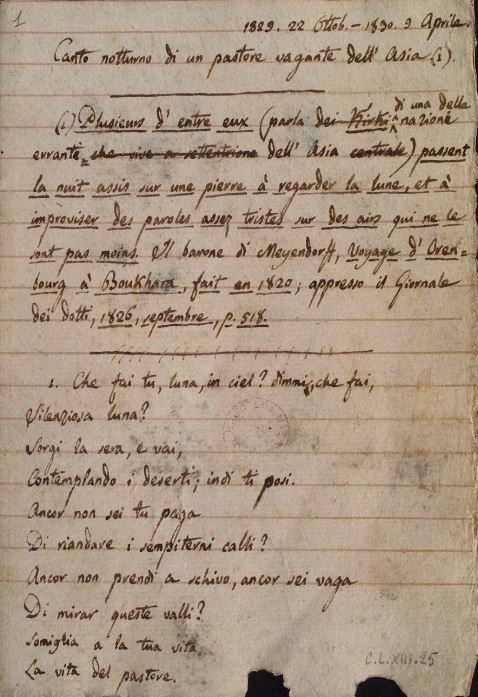 1
1829. 22 Ottob. - 1830. 9 Aprile.
Canto notturno di un pastore vagante dell' Asia (1).
(1) Plusieurs d' entre eux (parla dei Kirki di una delle nazione
errante, che vive a settentrione dell' Asia centrale) passent
la nuit assis sur une pierre à regarder la lune, et à
improviser des paroles assez tristes sur des airs qui ne le
sont pas moins. Il barone di Meyendorff, Voyage d' Oren-
bourg à Boukhara, fait en 1820; appresso il Giornale
dei dotti, 1826, septembre, p. 518.
1. Che fai tu, luna, in ciel? dimmi, che fai,
Silenziosa luna?
Sorgi la sera, e vai,
Contemplando i deserti; indi ti posi.
Ancor non sei tu paga
Di riandare i sempiterni calli?
Ancor non prendi a schivo, ancor sei vaga
Di mirar queste valli?
Somiglia a la tua vita
La vita del pastore.
C.L.XIII.25